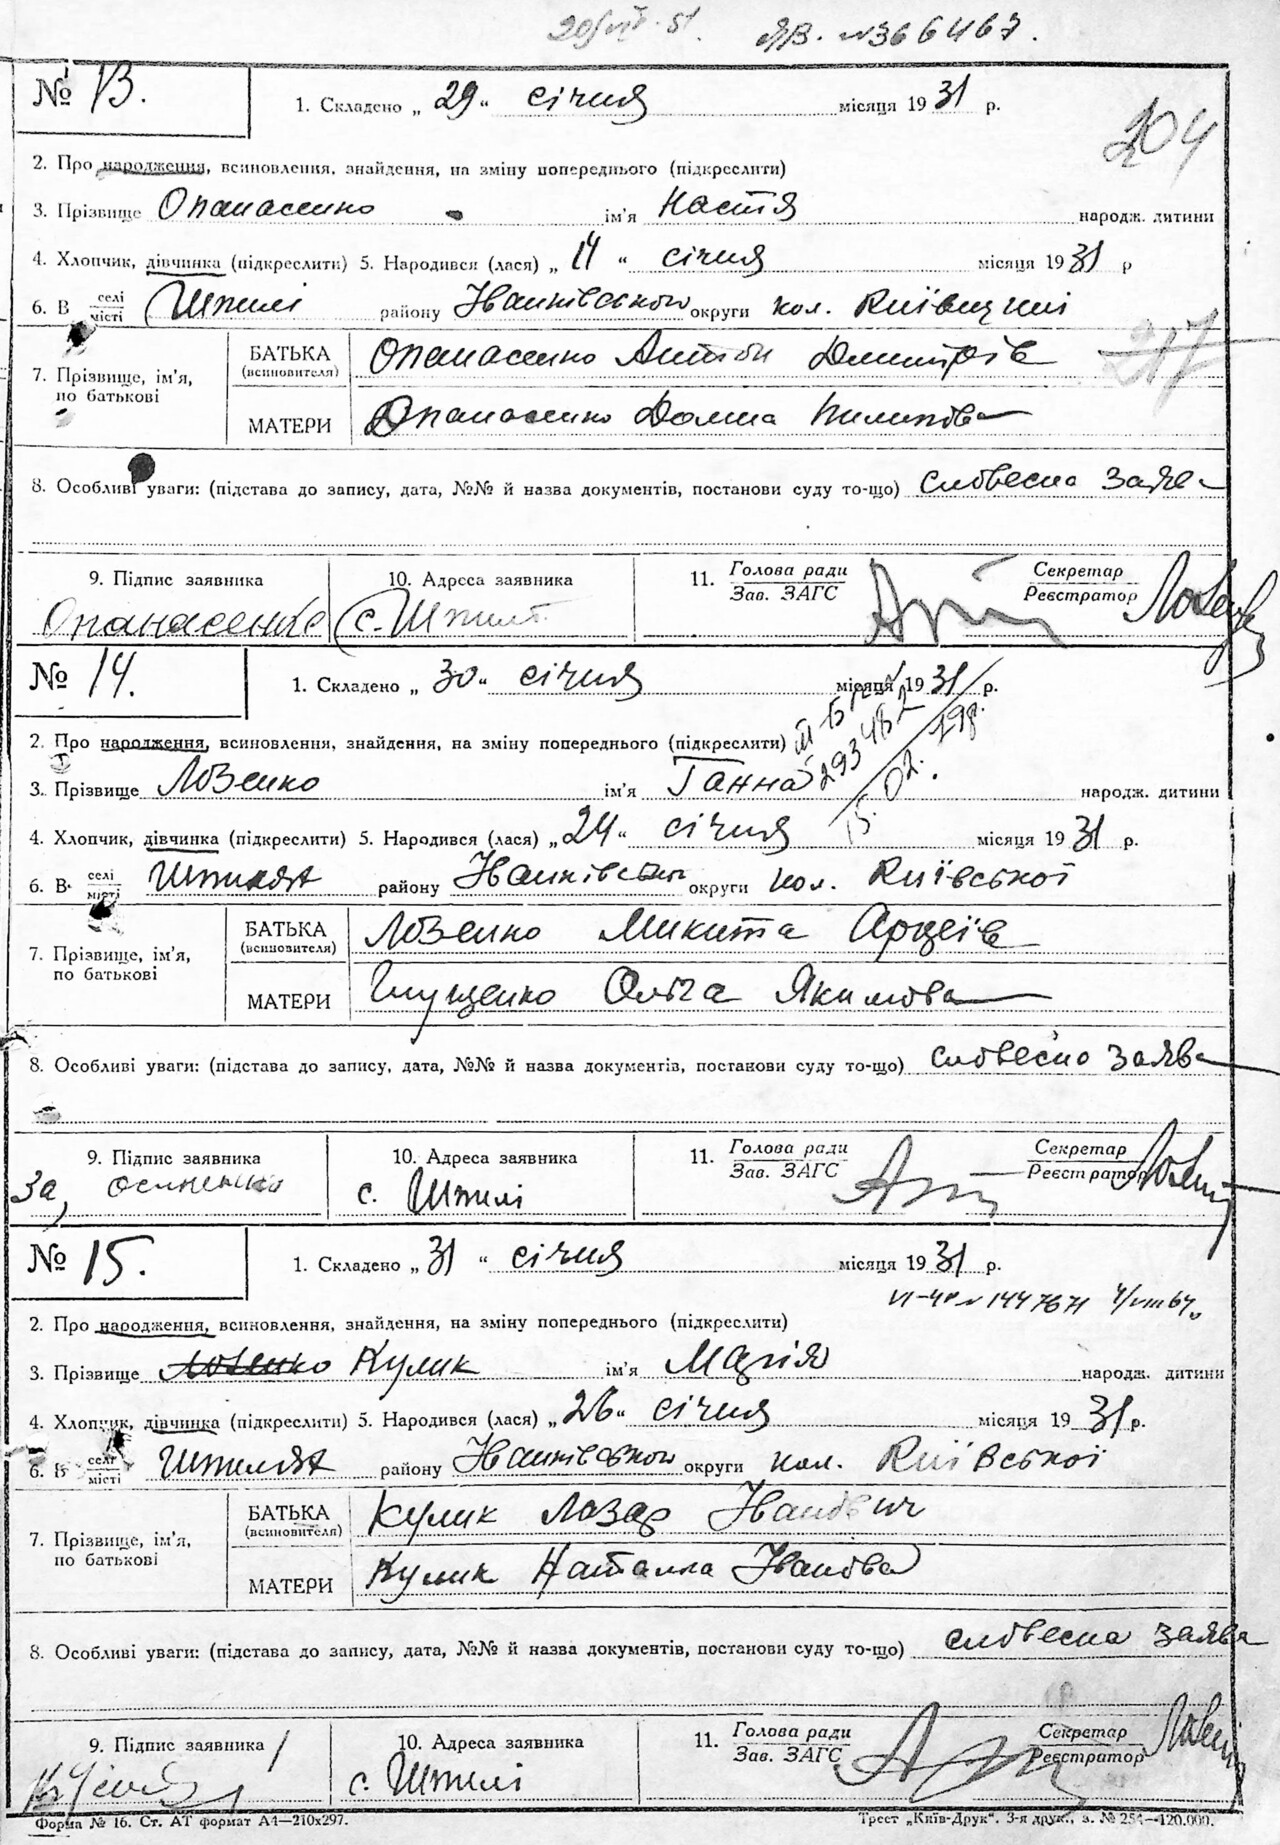 ЯВ. №366467.
№ 13.
1. Складено „ 29 “ січня місяця 1931 р.
204
2. Про народження, всиновлення, знайдення, на зміну попереднього (підкреслити)
3. Прізвище Опанасенко ім'я Настя народж. дитини
4. Хлопчик, дівчинка (підкреслити) 5. Народився (лася) „ 14 “ січня місяця 1931 р
6. В селі/місті Шпилі району Іванківського округи кол. Київщині
217
7. Прізвище, ім'я, по батькові
БАТЬКА (всиновителя) Опанасенко Антон Дмитрів
МАТЕРИ Опанасенко Домна Пилипова
8. Особливі уваги: (підстава до запису, дата, №№ й назва документів, постанови суду то-що) словесна заява
9. Підпис заявника 10. Адреса заявника 11. Голова ради/Зав. ЗАГС Секретар/Реєстратор
Опанасенко с. Шпилі
№ 14.
1. Складено „ 30 “ січня місяця 1931 р.
2. Про народження, всиновлення, знайдення, на зміну попереднього (підкреслити)
293482
3. Прізвище Лозенко ім'я Ганна народж. дитини
15.02.
4. Хлопчик, дівчинка (підкреслити) 5. Народився (лася) „ 24 “ січня місяця 1931 р.
6. В селі/місті Шпилях району Іванківськ округи кол. Київської
7. Прізвище, ім'я, по батькові
БАТЬКА (всиновителя) Лозенко Микита
МАТЕРИ Глущенко Ольга Якимова
8. Особливі уваги: (підстава до запису, дата, №№ й назва документів, постанови суду то-що) словесно заява
9. Підпис заявника 10. Адреса заявника 11. Голова ради/Зав. ЗАГС Секретар/Реєстратор
За, с. Шпилі
№ 15.
1. Складено „ 31 “ січня місяця 1931 р.
VI-4Р № 1447671 4/VIII 67
2. Про народження, всиновлення, знайдення, на зміну попереднього (підкреслити)
3. Прізвище Кулик ім'я Марія народж. дитини
4. Хлопчик, дівчинка (підкреслити) 5. Народився (лася) „ 26 “ січня місяця 1931 р.
6. В селі/місті Шпилях району Іванківського округи кол. Київської
7. Прізвище, ім'я, по батькові
БАТЬКА (всиновителя) Кулик Лазар Іванович
МАТЕРИ Кулик Наталка Іванова
8. Особливі уваги: (підстава до запису, дата, №№ й назва документів, постанови суду то-що) словесна заява
9. Підпис заявника 10. Адреса заявника 11. Голова ради/Зав. ЗАГС Секретар/Реєстратор
с. Шпилі
Форма № 16. Ст. АТ формат А4—210х297. Трест „Київ-Друк“. 3-я друк., з. № 254—120.000.